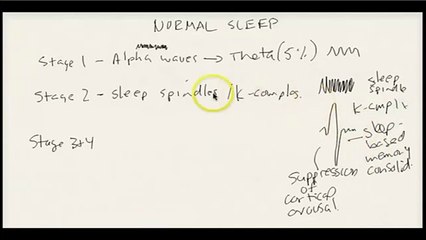 NORMAL SLEEP
Stage 1 - Alpha waves → Theta (5%)
Stage 2 - sleep spindles / k-complex.
sleep
spindle
k-cmplx
Stage 3+4
sleep-
based
memory
consolid.
suppression
of
cortical
arousal.